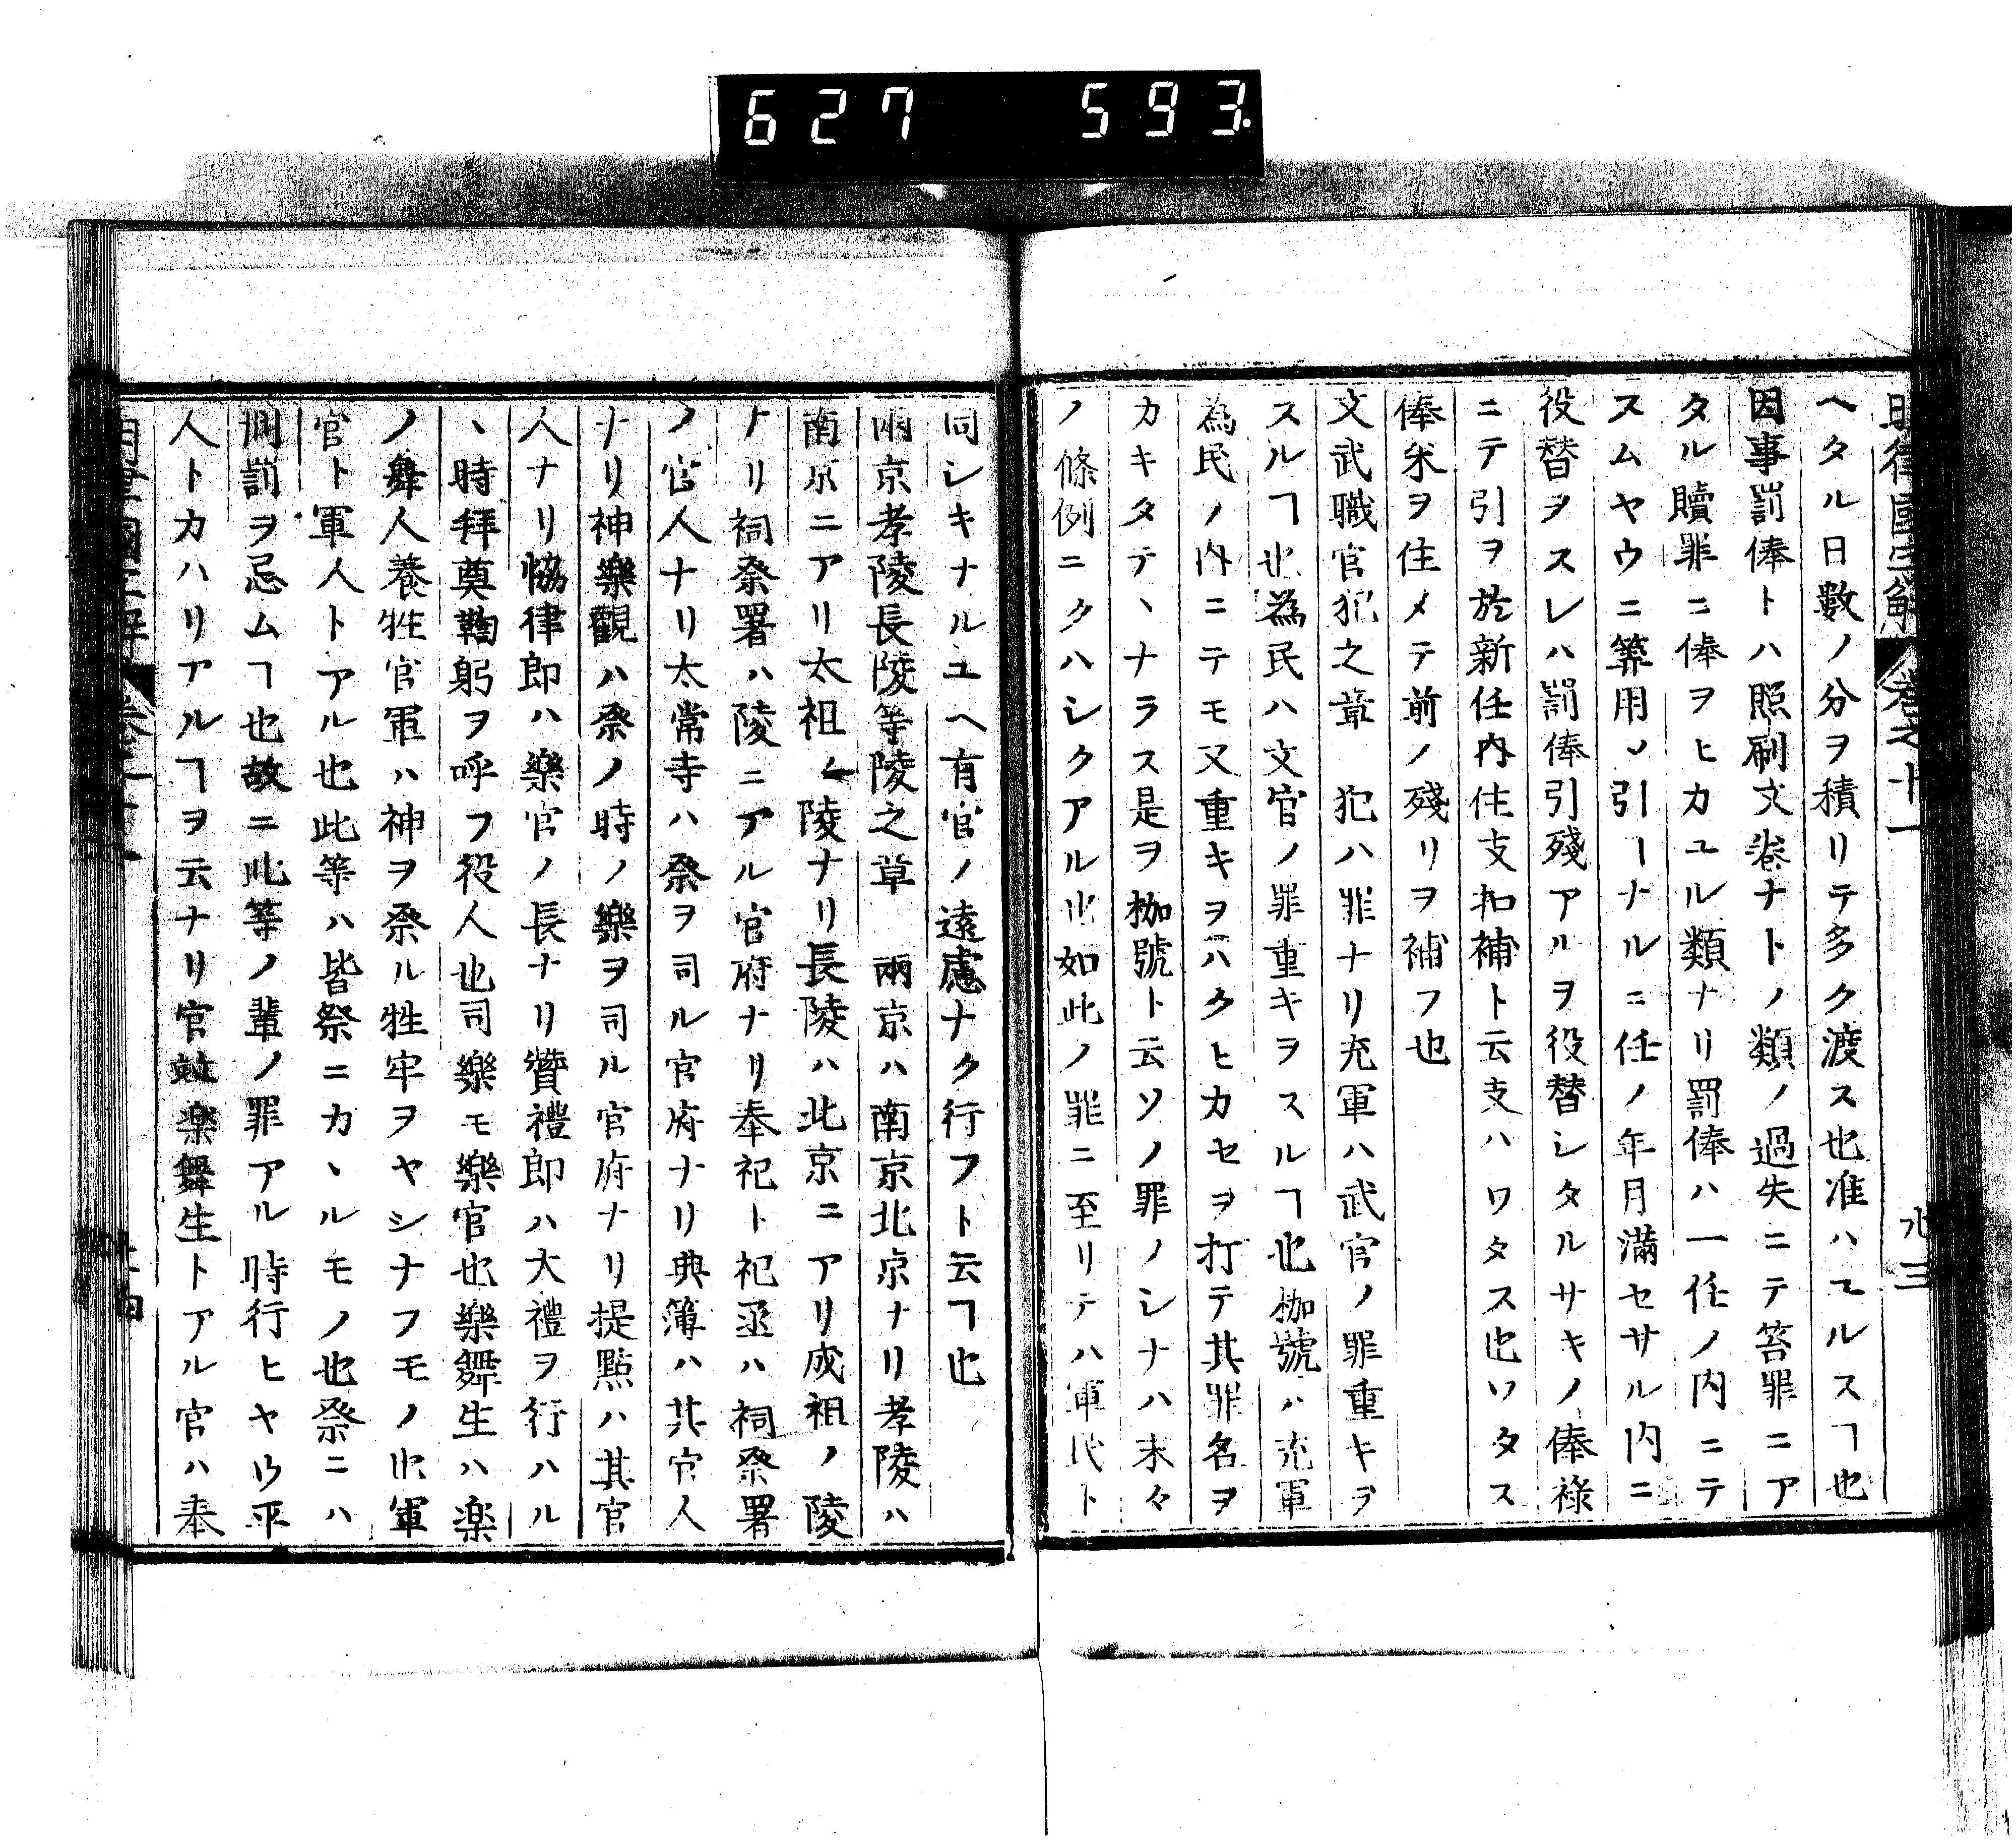 627 593.
明律國字解 卷之十一
ヘタル日數ノ分ヲ積リテ多ク渡ス也准ハユルスヿ也
因事罰俸トハ照刷文卷ナトノ類ノ過失ニテ笞罪ニア
タル贖罪ニ俸ヲヒカユル類ナリ罰俸ハ一任ノ内ニテ
スムヤウニ筭用シ引ーナルニ任ノ年月滿セサル内ニ
役替ヲスレハ罰俸引殘アルヲ役替レタルサキノ俸祿
ニテ引ヲ於新任内住支扣補ト云支ハワタス也ワタス
俸米ヲ住メテ前ノ殘リヲ補フ也
文武職官犯之章 犯ハ罪ナリ充軍ハ武官ノ罪重キヲ
スルヿ也為民ハ文官ノ罪重キヲスルヿ也枷號ハ充軍
為民ノ内ニテモ又重キヲハクヒカセヲ打テ其罪名ヲ
カキタテヽナラス是ヲ枷號ト云ソノ罪ノシナハ末々
ノ條例ニクハシクアル也如此ノ罪ニ至リテハ軍民ト
同シキナルユヘ有官ノ遠慮ナク行フト云ヿ也
兩京孝陵長陵等陵之章 兩京ハ南京北京ナリ孝陵ハ
南京ニアリ太祖ノ陵ナリ長陵ハ北京ニアリ成祖ノ陵
ナリ祠祭署ハ陵ニアル官府ナリ奉祀ト祀丞ハ祠祭署
ノ官人ナリ太常寺ハ祭ヲ司ル官府ナリ典簿ハ其官人
ナリ神樂觀ハ祭ノ時ノ樂ヲ司ル官府ナリ提點ハ其官
人ナリ恊律郎ハ樂官ノ長ナリ贊禮郎ハ大禮ヲ行ハル
ヽ時拜奠鞠躬ヲ呼フ役人也司樂モ樂官也樂舞生ハ楽
ノ舞人養牲官軍ハ神ヲ祭ル牲牢ヲヤシナフモノ也軍
官ト軍人トアル也此等ハ皆祭ニカヽルモノ也祭ニハ
刑罰ヲ忌ムヿ也故ニ此等ノ輩ノ罪アル時行ヒヤウ平
人トカハリアルヿヲ云ナリ官並楽舞生トアル官ハ奉